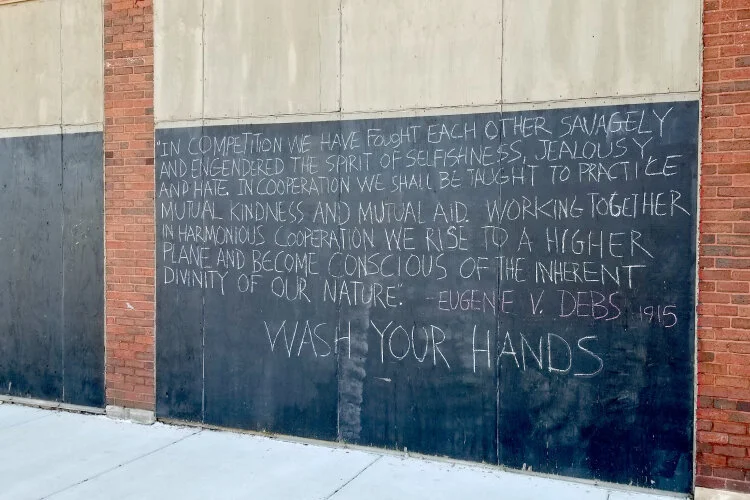 "IN COMPETITION WE HAVE FOUGHT EACH OTHER SAVAGELY
AND ENGENDERED THE SPIRIT OF SELFISHNESS, JEALOUSY
AND HATE. IN COOPERATION WE SHALL BE TAUGHT TO PRACTICE
MUTUAL KINDNESS AND MUTUAL AID. WORKING TOGETHER
IN HARMONIOUS COOPERATION WE RISE TO A HIGHER
PLANE AND BECOME CONSCIOUS OF THE INHERENT
DIVINITY OF OUR NATURE." - EUGENE V. DEBS 1915
WASH YOUR HANDS